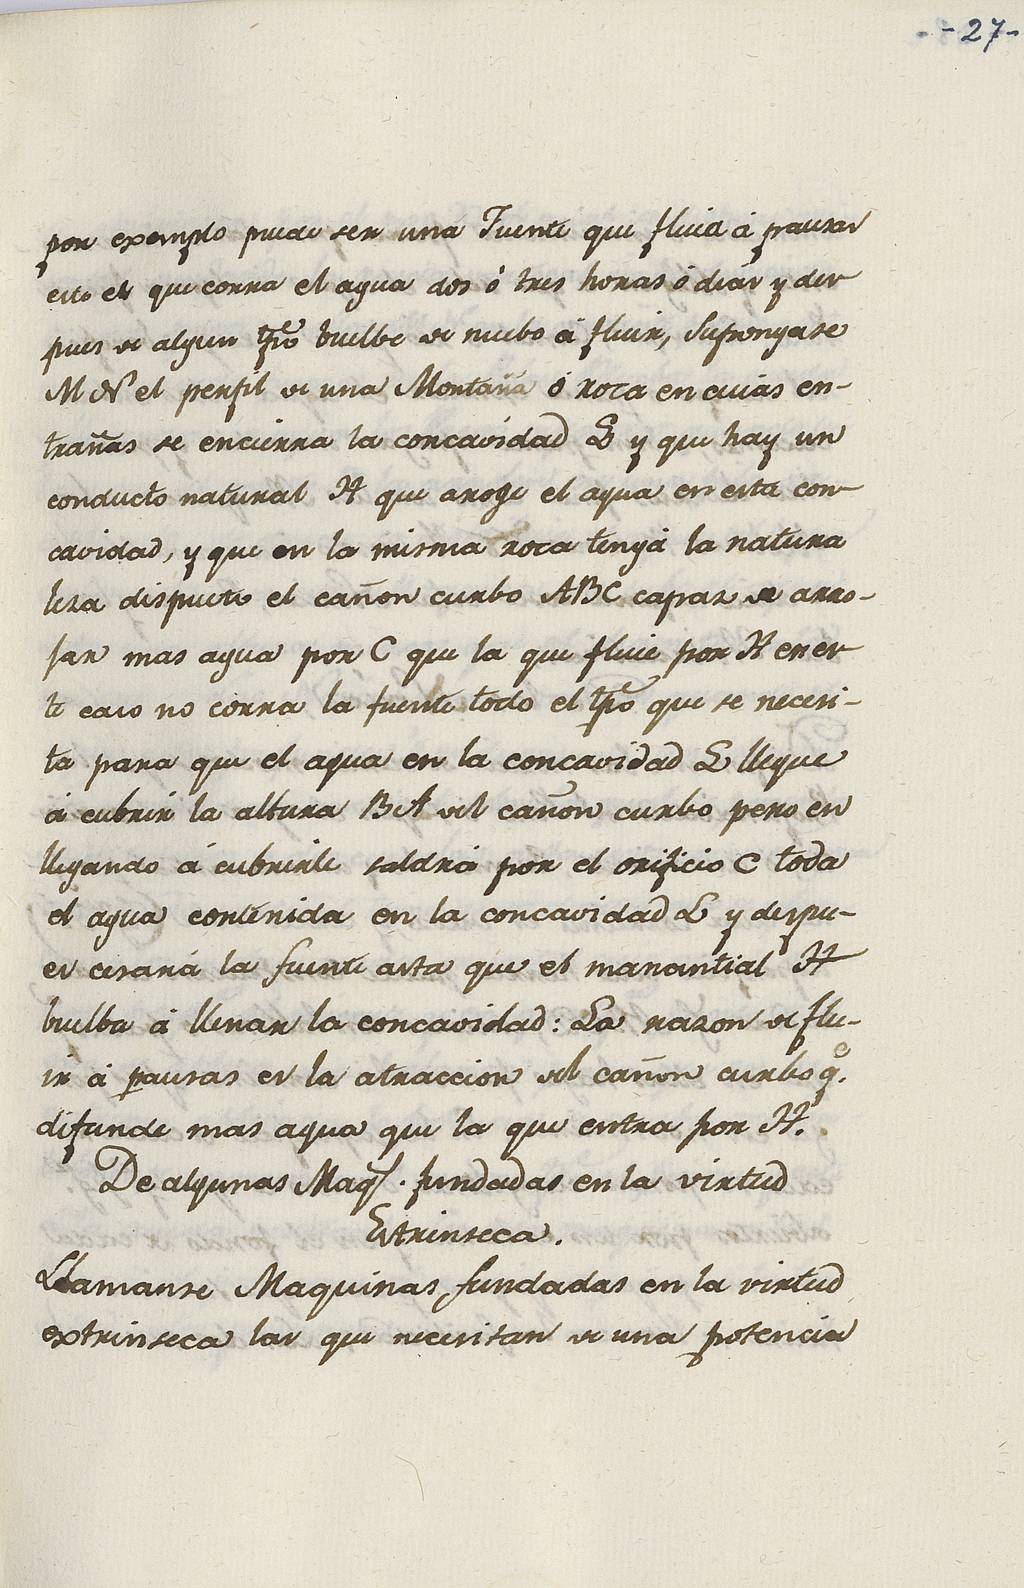 - - 27 -
por exemplo puede ser una Fuente que fluia á pausas
esto es que corra el agua dos ó tres horas ó dias y des
pues de algun tpo buelbe de nuebo á fluir, Supongase
M N el perfil de una Montaña ó roca en cuias en-
trañas se encierra la concavidad L y que hay un
conducto natural H que aroge el agua en esta con-
cavidad, y que en la misma roca tenga la natura
leza dispueto el cañon curbo ABC capaz de arro-
jar mas agua por C que la que fluie por H en es
te caso no corra la fuente todo el tpo que se necesi-
ta para que el agua en la concavidad L llegue
á cubrir la altura BA del cañon curbo pero en
llegando á cubrirle saldrá por el orificio C toda
el agua contenida en la concavidad L y despu-
es cesará la fuente asta que el manantial H
buelba á llenar la concavidad: La razon de flu-
ir á pausas es la atraccion del cañon curbo q.e
difunde mas agua que la que entra por H.
De algunas Maqs. fundadas en la virtud
Estrinseca.
Llamanse Maquinas fundadas en la virtud
extrinseca las que necesitan de una potencia